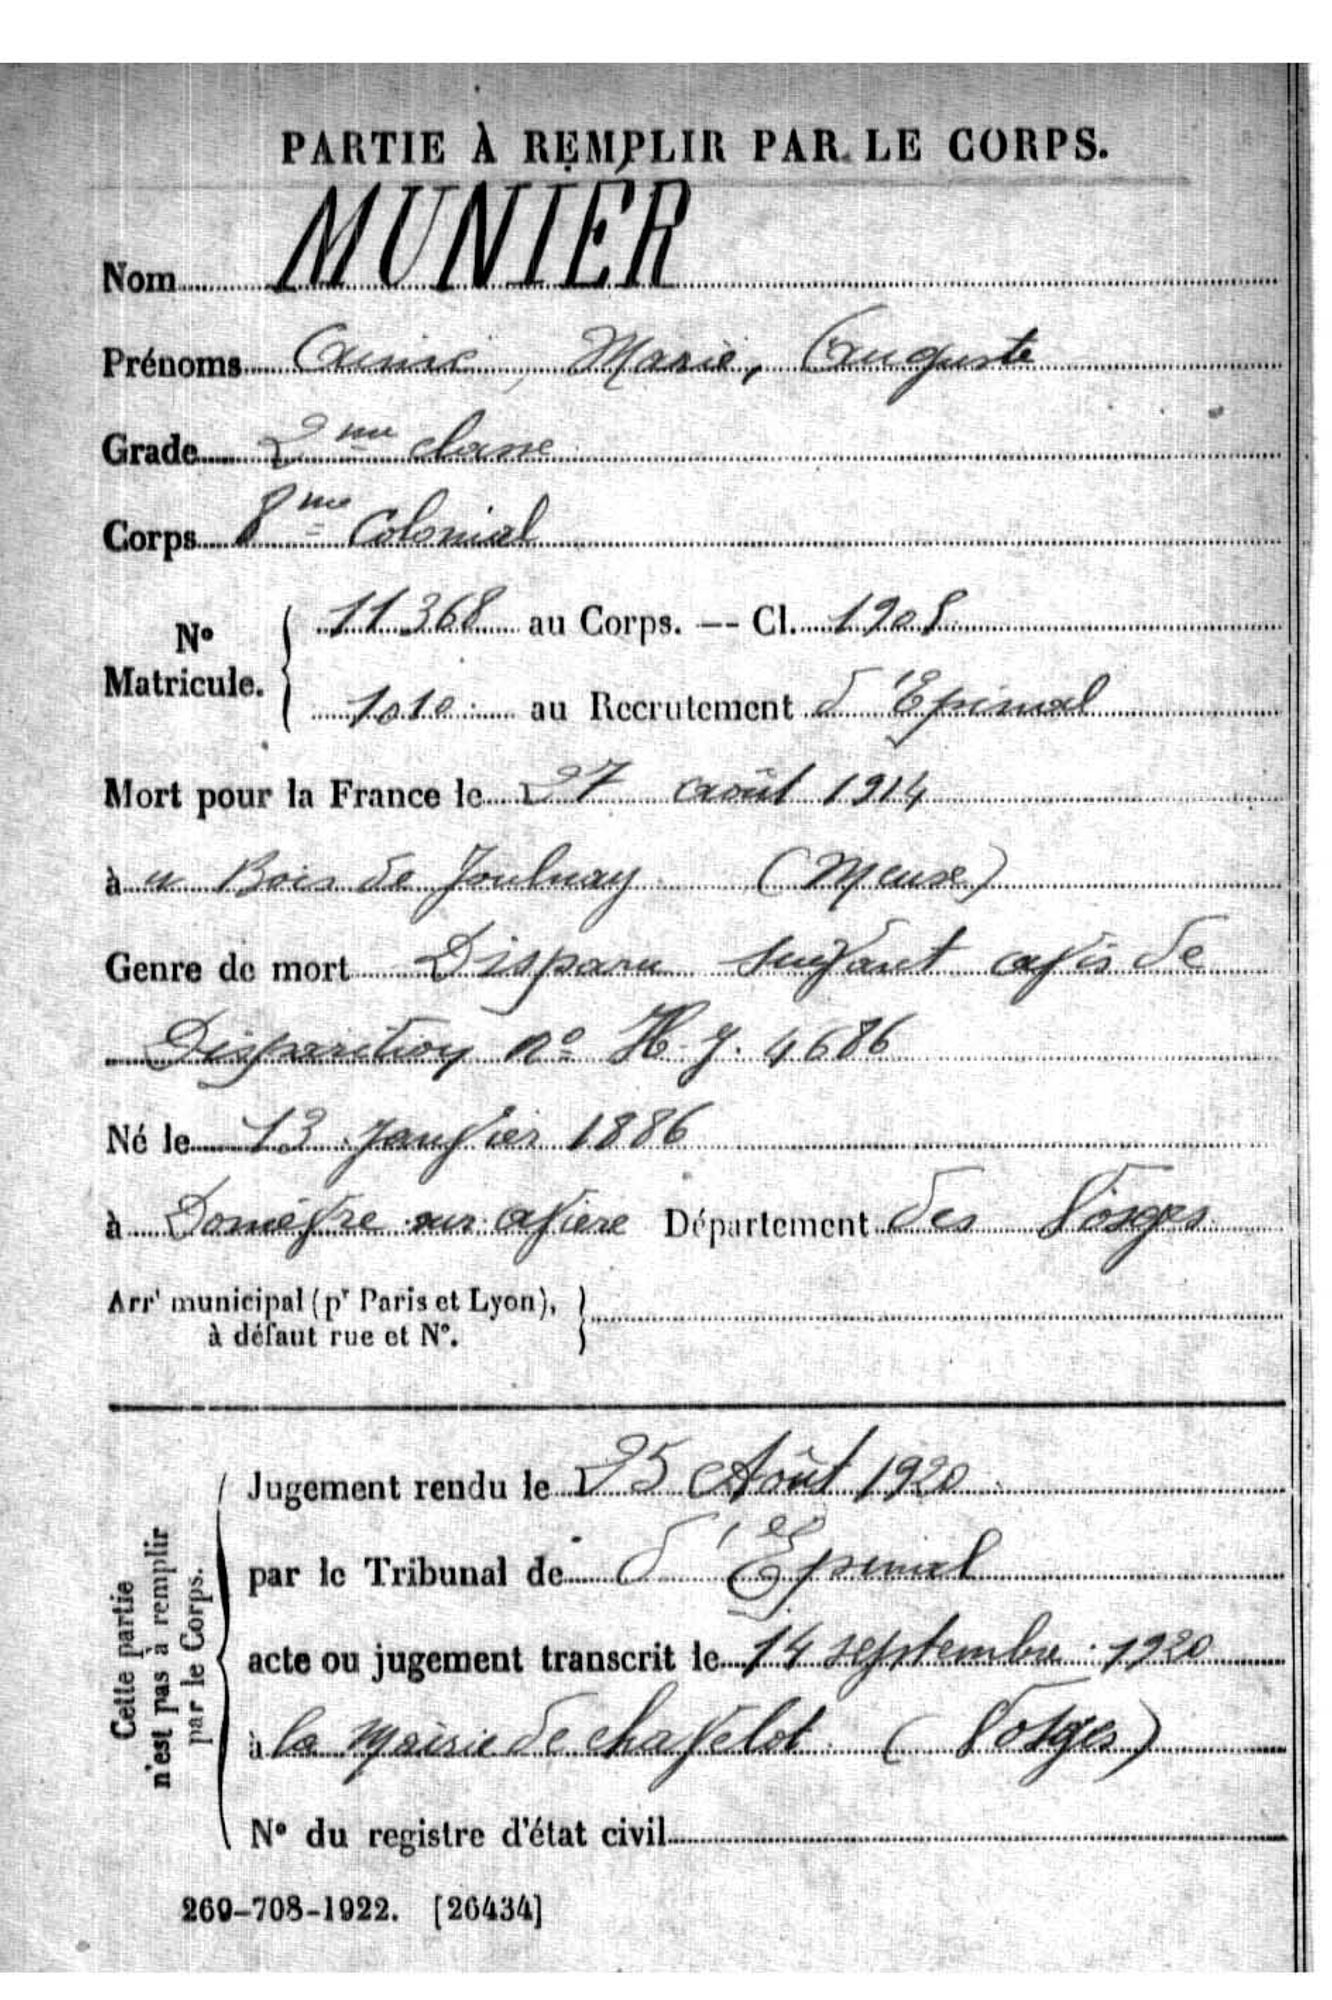 PARTIE À REMPLIR PAR LE CORPS.
Nom MUNIER
Prénoms Marie, Auguste
Grade 2me classe
Corps 8me Colonial
No Maticule. 11.368 au Corps. -- Cl. 1908
1010 au Recrutement d'Epinal
Mort pour la France le 27 août 1914
à u Bois de Joulnay (Meuse)
Genre de mort Disparu suivant avis de
Disparition no 4686
Né le 13 Janvier 1886
à Domèvre sur Avière Département des Vosges
Arrt municipal (pr Paris et Lyon), à défaut rue et No.
Cette partie n'est pas à remplir par le Corps.
Jugement rendu le 25 Août 1920
par le Tribunal de d'Epinal
acte ou jugement transcrit le 14 septembre 1920
à la Mairie de Chavelot (Vosges)
No du registre d'état civil
269-708-1922. [26434]